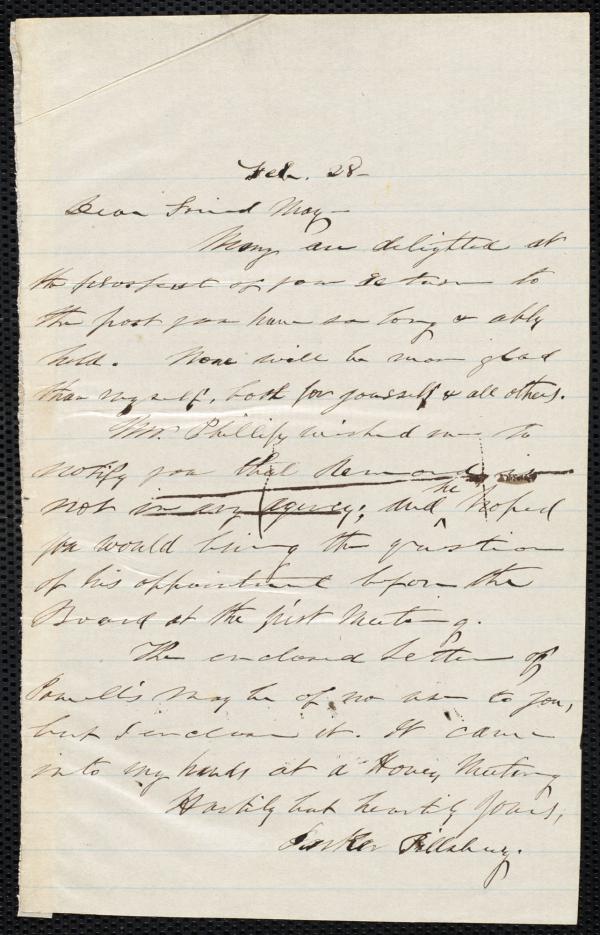 Feb. 28-
Dear Friend May-
Many are delighted at
the prospect of your return to
the post you have so long & ably
held. None will be more glad
than myself, both for yourself & all others.
Mr. Phillips wished me to
notify you that Remond is
not in any agency; and he hoped
you would bring the question
of his appointment before the
Board at the first Meeting.
The enclosed Letter of
Powell's may be of no use to you,
but I enclose it. It came
into my hands at a Hovey Meeting
Hastily but heartily Yours,
Parker Pillsbury.